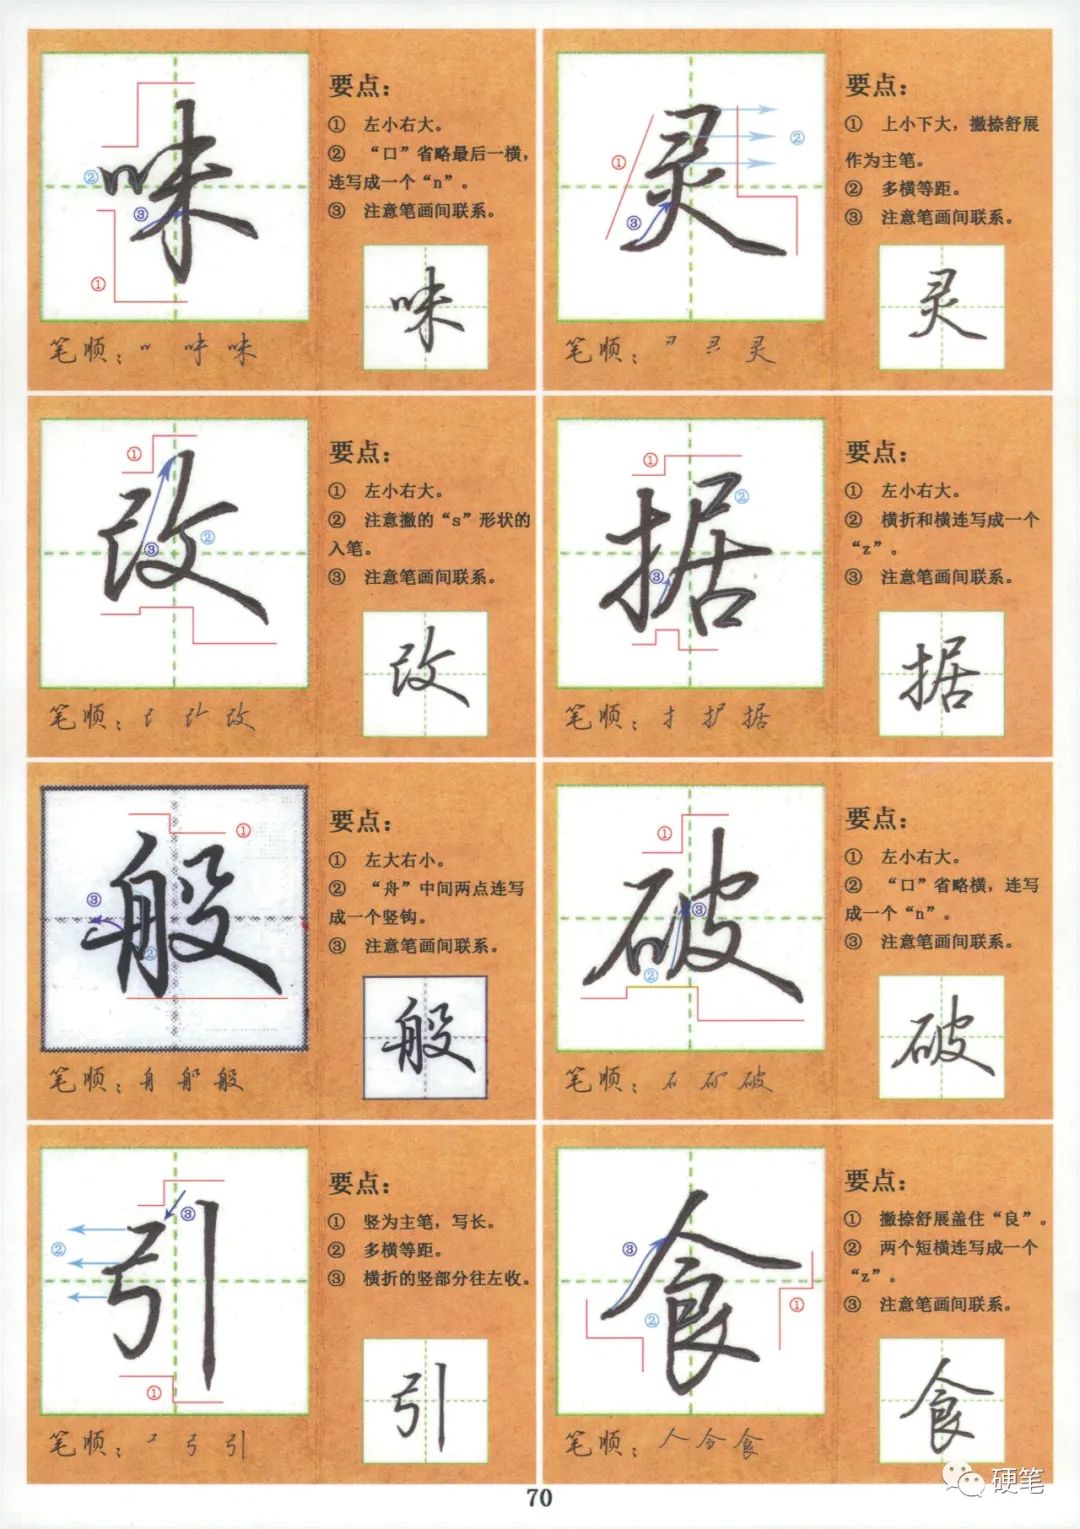 味
①
②
③
要点：
① 左小右大。
② “口”省略最后一横，
连写成一个“n”。
③ 注意笔画间联系。
味
笔顺：味
灵
①
②
③
要点：
① 上小下大，撇捺舒展
作为主笔。
② 多横等距。
③ 注意笔画间联系。
灵
笔顺：灵
改
①
②
③
要点：
① 左小右大。
② 注意撇的“s”形状的
入笔。
③ 注意笔画间联系。
改
笔顺：改
据
①
②
③
要点：
① 左小右大。
② 横折和横连写成一个
“z”。
③ 注意笔画间联系。
据
笔顺：扌 护 据
般
①
②
③
要点：
① 左大右小。
② “舟”中间两点连写
成一个竖钩。
③ 注意笔画间联系。
般
笔顺：舟 般
破
①
②
③
要点：
① 左小右大。
② “口”省略横，连写
成一个“n”。
③ 注意笔画间联系。
破
笔顺：石 破
引
①
②
③
要点：
① 竖为主笔，写长。
② 多横等距。
③ 横折的竖部分往左收。
引
笔顺：弓 引
食
①
②
③
要点：
① 撇捺舒展盖住“良”。
② 两个短横连写成一个
“z”。
③ 注意笔画间联系。
食
笔顺：人 今 食
硬笔
70